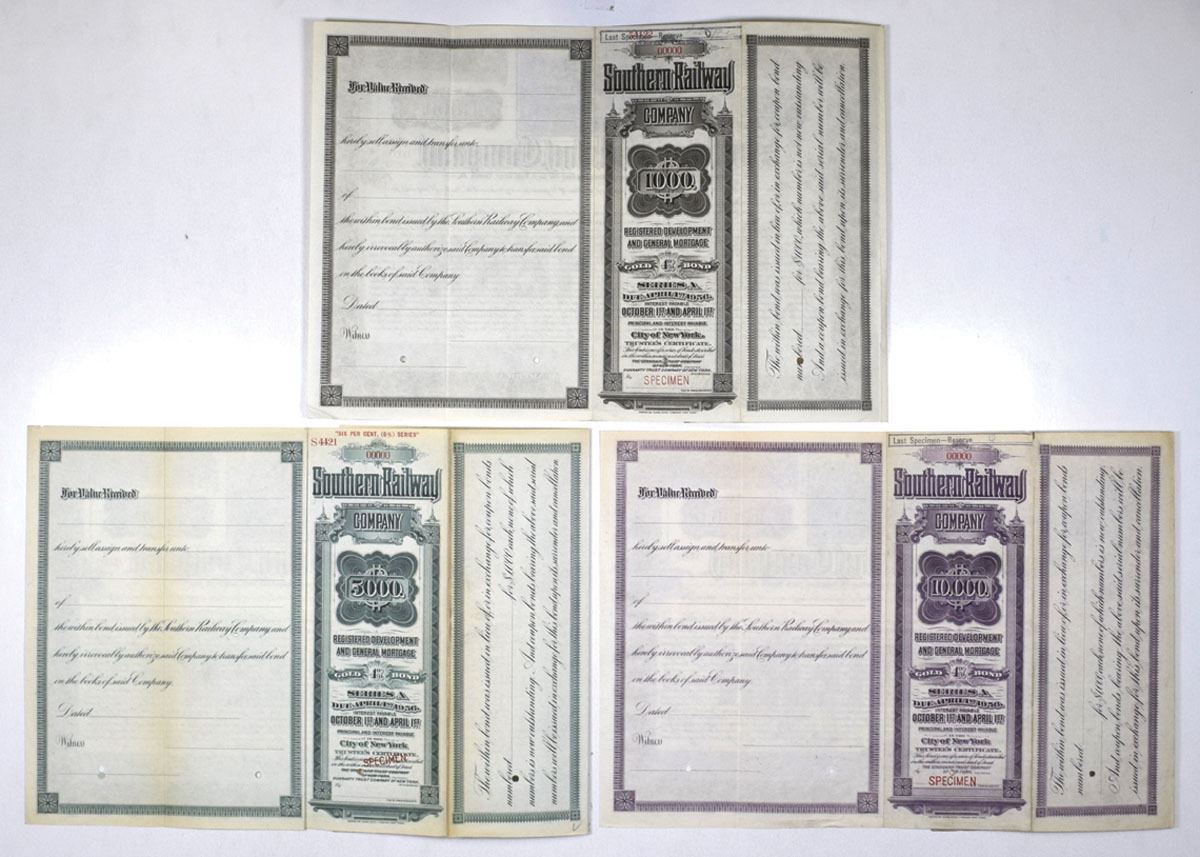 For Value Received
hereby sell assign and transfer unto
of
the within bond issued by the Southern Railway Company, and
hereby irrevocably authorize said Company to transfer said bond
on the books of said Company.
Dated
Witness
Last Specimen—Reserve
00000
Southern Railway
COMPANY
1000.
REGISTERED DEVELOPMENT
AND GENERAL MORTGAGE
GOLD 4% BOND
SERIES A.
DUE APRIL 1ST 1956.
INTEREST PAYABLE
OCTOBER 1ST AND APRIL 1ST
PRINCIPAL AND INTEREST PAYABLE
IN THE
City of New York.
TRUSTEE'S CERTIFICATE.
This bond is one of a series of bonds described
in the within mentioned deed of trust
THE STANDARD TRUST COMPANY
OF NEW YORK.
GUARANTY TRUST COMPANY OF NEW YORK.
By
SPECIMEN
The within bond was issued in lieu of or in exchange for coupon bond
numbered for $1000, which number is not now outstanding
And a coupon bond bearing the above said serial number will be
issued in exchange for this bond upon its surrender and cancellation.
For Value Received
hereby sell assign and transfer unto
of
the within bond issued by the Southern Railway Company and
hereby irrevocably authorize said Company to transfer said bond
on the books of said Company.
Dated
Witness
"SIX PER CENT. (6%) SERIES"
S4421
00000
Southern Railway
COMPANY
5000.
REGISTERED DEVELOPMENT
AND GENERAL MORTGAGE
GOLD 4% BOND
SERIES A
DUE APRIL 1ST 1956.
INTEREST PAYABLE
OCTOBER 1ST AND APRIL 1ST
PRINCIPAL AND INTEREST PAYABLE
IN THE
City of New York
TRUSTEE'S CERTIFICATE.
This bond is one of a series of bonds described
in the within mentioned deed of trust
OF NEW YORK.
GUARANTY TRUST COMPANY OF NEW YORK.
By
SPECIMEN
The within bond was issued in lieu of or in exchange for coupon bonds
numbered for $1000 each, none of which
numbers is now outstanding. And coupon bonds bearing the above said serial
numbers will be issued in exchange for this bond upon its surrender and cancellation
For Value Received
hereby sell assign and transfer unto
of
the within bond issued by the Southern Railway Company and
hereby irrevocably authorize said Company to transfer said bond
on the books of said Company
Dated
Witness
Last Specimen—Reserve
00000
Southern Railway
COMPANY
10,000.
REGISTERED DEVELOPMENT
AND GENERAL MORTGAGE
GOLD 4% BOND
SERIES A
DUE APRIL 1ST 1956.
INTEREST PAYABLE
OCTOBER 1ST AND APRIL 1ST
PRINCIPAL AND INTEREST PAYABLE
IN THE
City of New York
TRUSTEE'S CERTIFICATE.
This bond is one of a series of bonds described
in the within mentioned deed of trust
THE STANDARD TRUST COMPANY
OF NEW YORK.
GUARANTY TRUST COMPANY OF NEW YORK.
By
SPECIMEN
The within bond was issued in lieu of or in exchange for coupon bonds
numbered for $1000 each, none of which numbers is now outstanding,
And coupon bonds bearing the above said serial numbers will be
issued in exchange for this bond upon its surrender and cancellation.